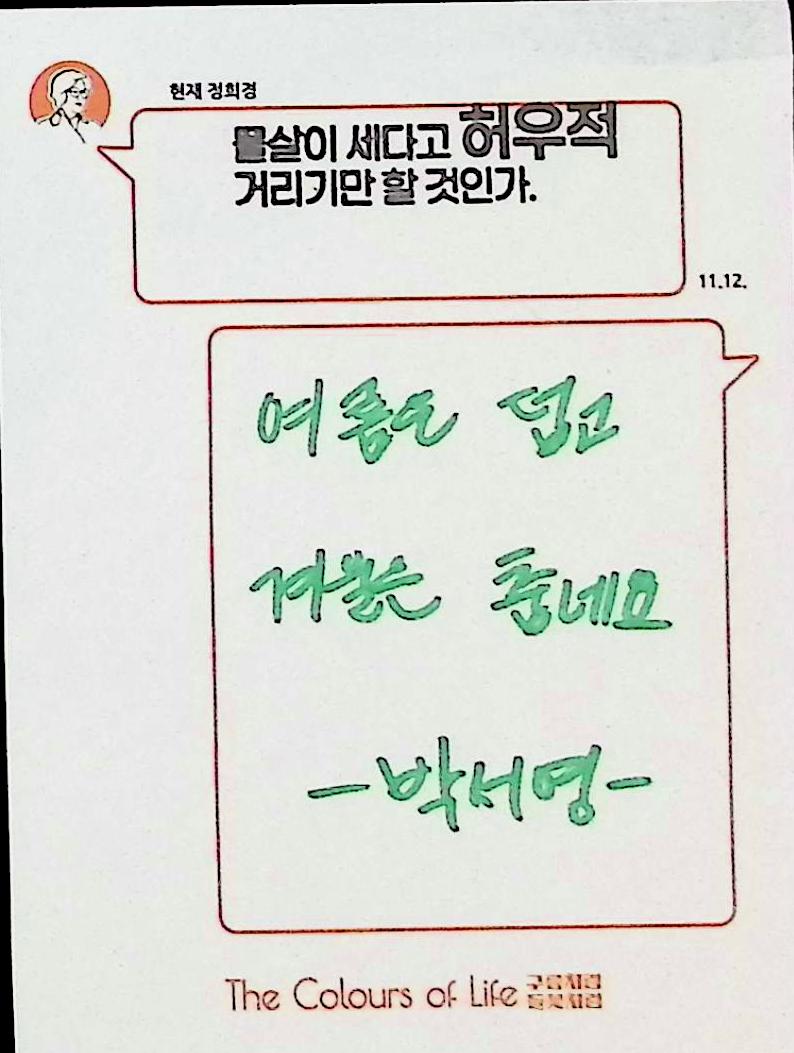 현재 정희경
물살이 세다고 허우적
거리기만 할 것인가.
11.12.
여름은 덥고
겨울은 춥네요
-박서영-
The Colours of Life 구름처럼
들꽃처럼